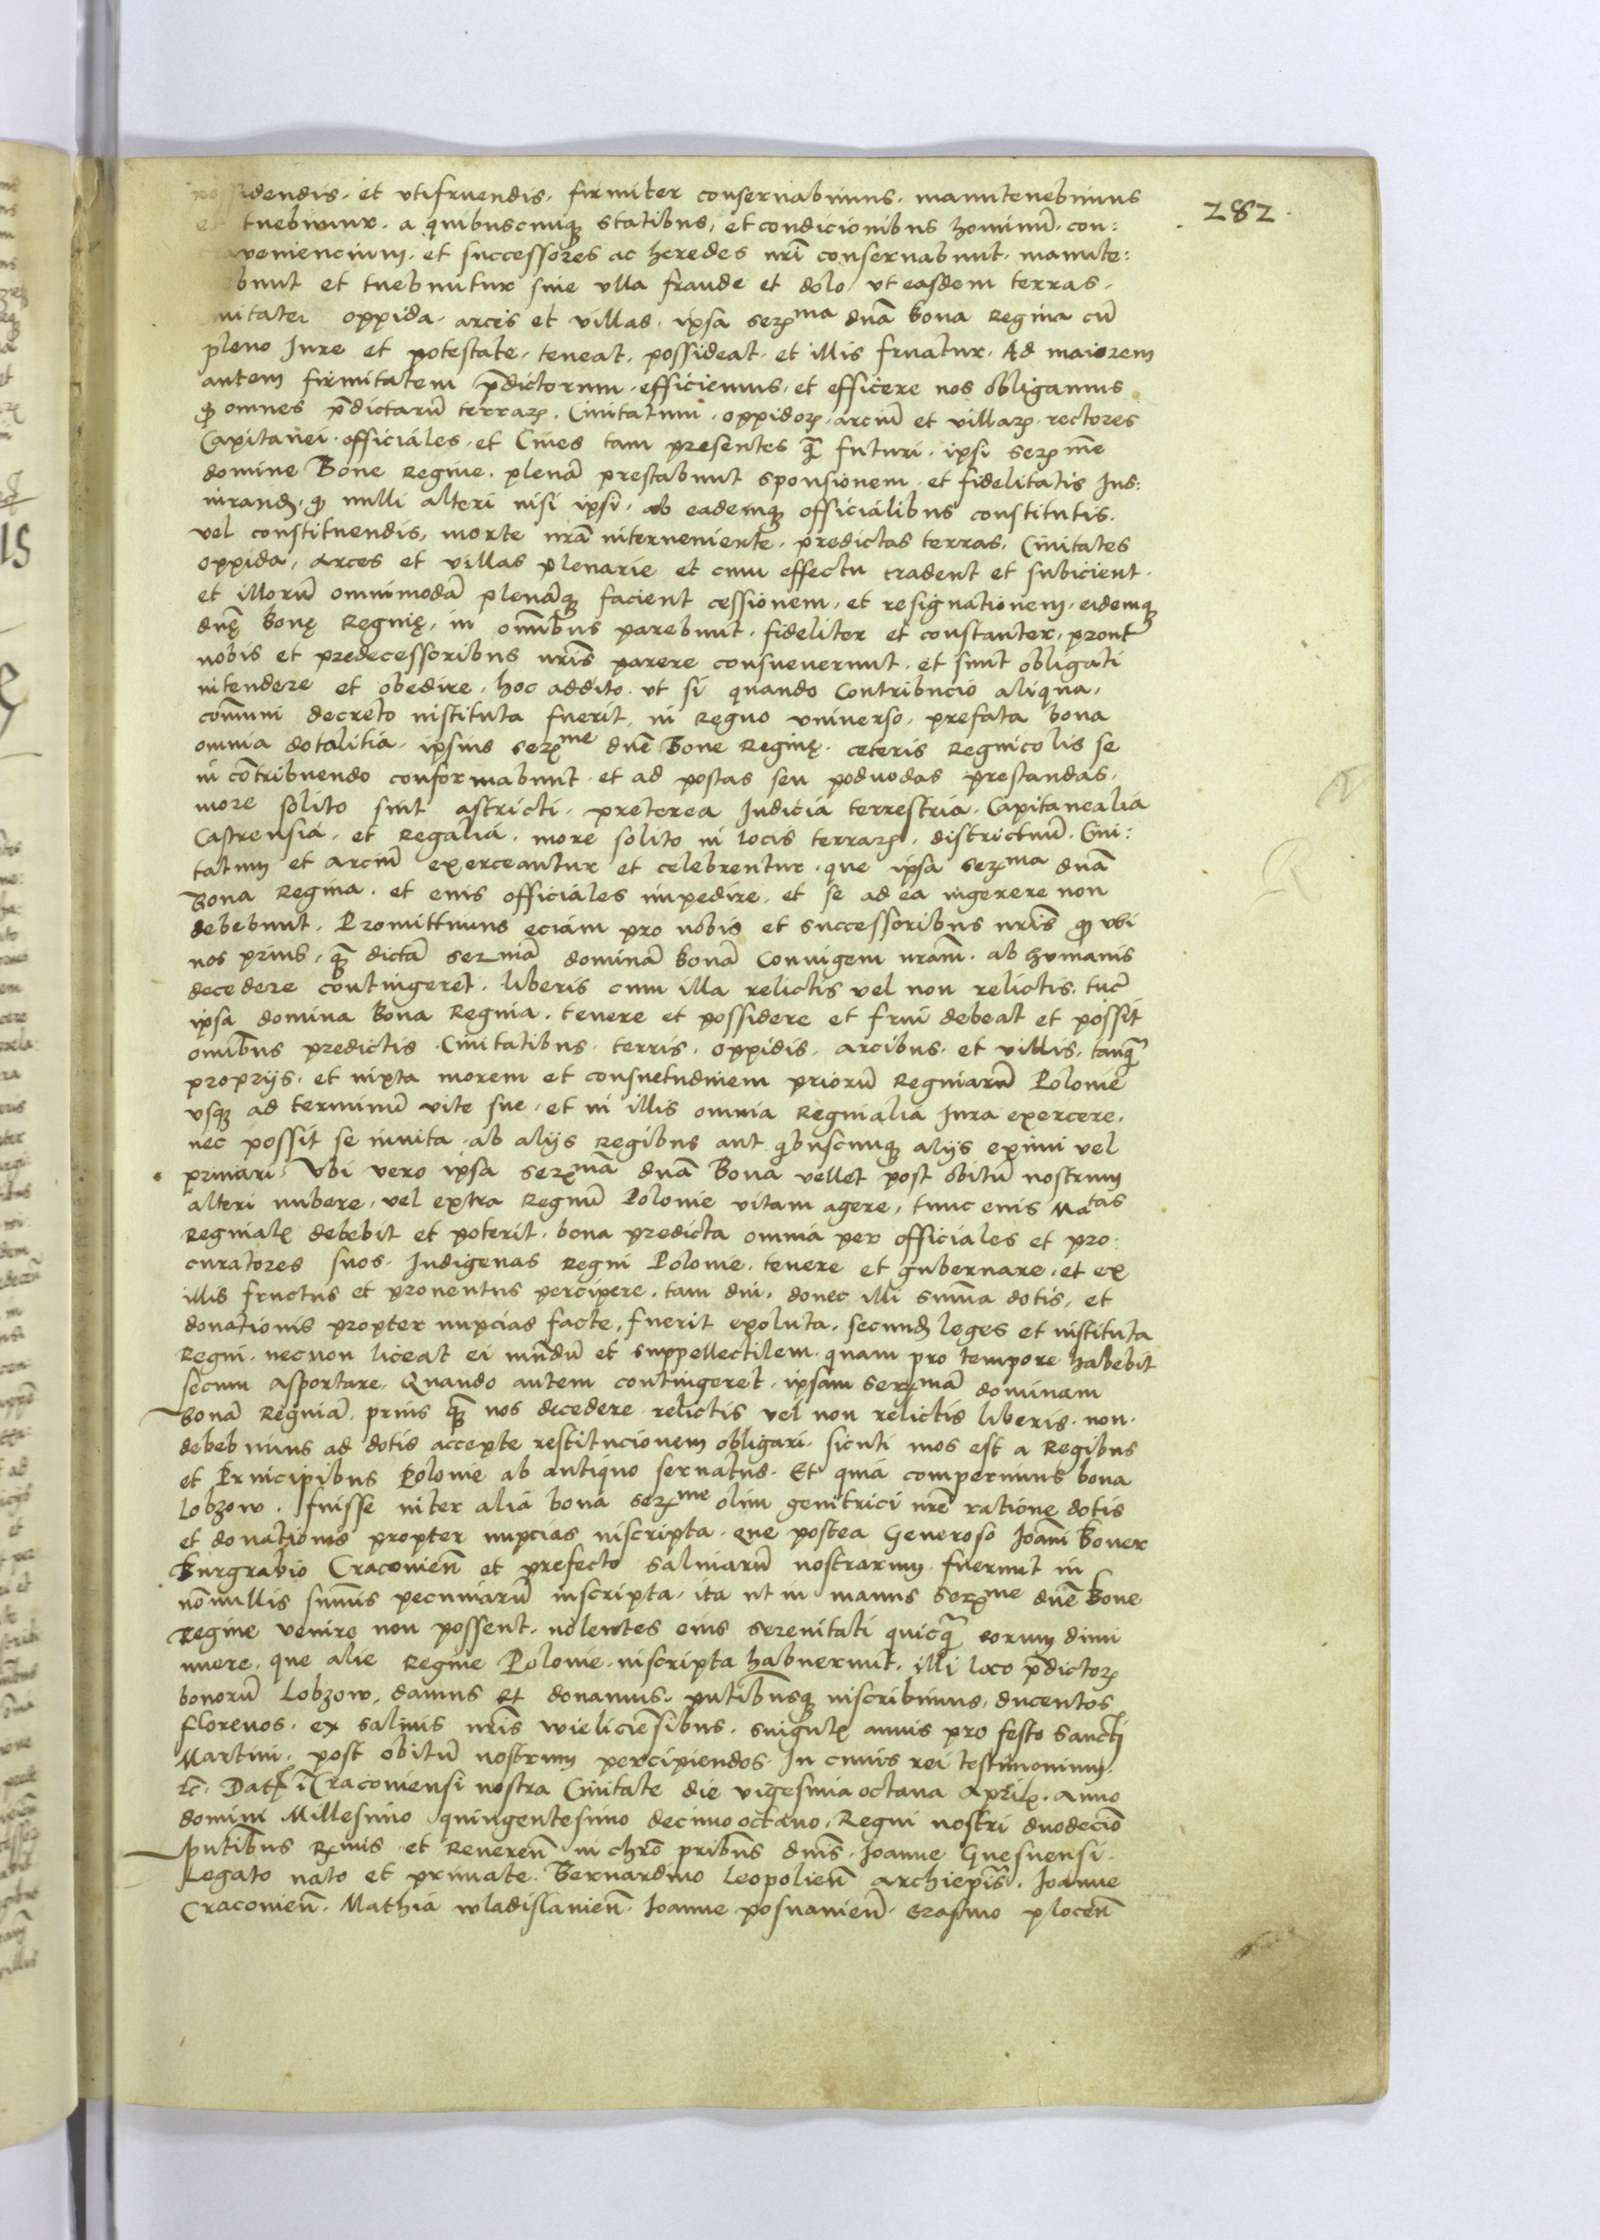 282
possidendis. et utifruendis. firmiter conservabimus. manutenebimus
et tuebimur. a quibuscunq statibus, et condicionibus hominũ. con:
veniencium. et successores ac heredes nrĩ conservabunt. manute:
bunt et tuebuntur sine ulla fraude et dolo ut easdem terras.
civitates oppida. arces et villas. ipsa serma dnã Bona Regina cũ
pleno Jure et potestate. teneat. possideat. et illis fruatur. Ad maiorem
autem firmitatem p̃dictorum. efficiemus. et efficere nos obligamus
q omnes p̃dictarũ terrarꝝ. Civitatum. oppidorꝝ. arciũ et villarꝝ. rectores
Capitanei. officiales. et Cives tam presentes q̃ futuri. ipsi serꝝ me
domine Bone Regine. plenã prestabunt sponsionem. et fidelitatis Jus:
iurandꝫ. q nulli alteri nisi ipsi. ab eademq officialibus constitutis.
vel constituendis, morte nrã interveniente. predictas terras. Civitates
oppida, arces et villas plenarie et cum effectu tradent et subicient.
et illorũ omnimodã plenãq facient cessionem. et resignationem. eidemq
dnę Bonę Reginę, in om̃ibus parebunt. fideliter et constanter, prout
nobis et predecessoribus nrĩs parere consueverunt. et sunt obligati
intendere et obedire. hoc addito. ut si quando Contribucio aliqua,
com̃uni decreto instituta fuerit, in Regno universo. prefata bona
omnia dotalitia. ipsius serꝝme dnẽ Bone Reginę. ceteris Regnicolis se
in cõtribuendo conformabunt. et ad postas seu podvodas prestandas.
more solito sint astricti. preterea Judicia terrestria. Capitanealia
Castrensia. et Regalia. more solito in locis terrarꝝ. districtuũ. Civi:
tatum et arciũ exerceantur et celebrentur. que ipsa serꝝma dnã
Bona Regina. et eius officiales impedire. et se ad ea ingerere non
debebunt. Promittimus eciam pro nobis et successoribus nrĩs q ubi
nos prius, q̃ dictã sermã dominã Bonã Coniugem nrãm. ab humanis
decedere contingeret. liberis cum illa relictis vel non relictis. tũc
ipsa domina Bona Regina. tenere et possidere et frui debeat et possit
omĩbus predictis Civitatibus. terris. oppidis. arcibus. et villis. tanq̃
proprijs. et iuxta morem et consuetudinem priorũ Reginarũ Polonie
usq ad terminũ vite sue. et in illis omnia Reginalia Jura exercere.
nec possit se invita. ab alijs Regibus aut qbuscunq alijs eximi vel
privari. Ubi vero ipsa serꝝmã dnã Bona vellet post obitũ nostrum
alteri nubere, vel extra Regnũ Polonie vitam agere, tunc eius Matas
Reginalꝭ debebit et poterit. bona predicta omnia per officiales et pro:
curatores suos. Indigenas Regni Polonie. tenere et gubernare. et ex
illis fructus et proventus percipere. tam diu. donec illi sum̃a dotis, et
donationis propter nupcias facte, fuerit exoluta. secundꝫ leges et instituta
Regni. necnon liceat ei mũdũ et suppellectilem. quam pro tempore habebit
secum asportare. Quando autem contingeret. ipsam serꝝmã dominam
Bonã Reginã. prius q̃ nos decedere relictis vel non relictis liberis. non.
debebimus ad dotis accepte restitucionem obligari. sicuti mos est a Regibus
et Principibus Polonie ab antiquo servatus. Et quia comperimus bona
Lobzow. fuisse inter alia bona serꝝme olim genitrici nrẽ ratione dotis
et donationis propter nupcias inscripta. que postea Generoso Joãni Boner
Burgrabio Cracovieñ et prefecto salinarũ nostrarum. fuerunt in
nõnullis sum̃is pecuniarũ inscripta. ita ut in manus Serꝝme dnẽ Bone
Regine venire non possent. nolentes eius serenitati quicq̃ eorum dimi
nuere. que alie Regine Polonie inscripta habuerunt. illi loco p̃dictorꝝ
bonorũ Lobzow. damus et donamus. pñtibusq inscribimus. ducentos
florenos. ex salinis nrĩs wieliciẽsibus. singulꝭ annis pro festo Sancti
Martini. post obitũ nostrum percipiendos. In cuius rei testimonium.
rc̃. Datꝭ ĩ Cracoviensi nostra Civitate die vigesima octava Aprilꝭ. Anno
domini Millesimo quingentesimo decimo octavo, Regni nostri duodecĩo
Pñtibus Rꝝmis et Reverenꝭ in chrõ pribus dnĩs. Joanne Gnesnensi.
Legato nato et primate. Bernardino Leopolieñ Archiepĩs. Joanne
Cracovieñ. Mathia wladislavieñ. Joanne posnanieñ. Erasmo ploceñ